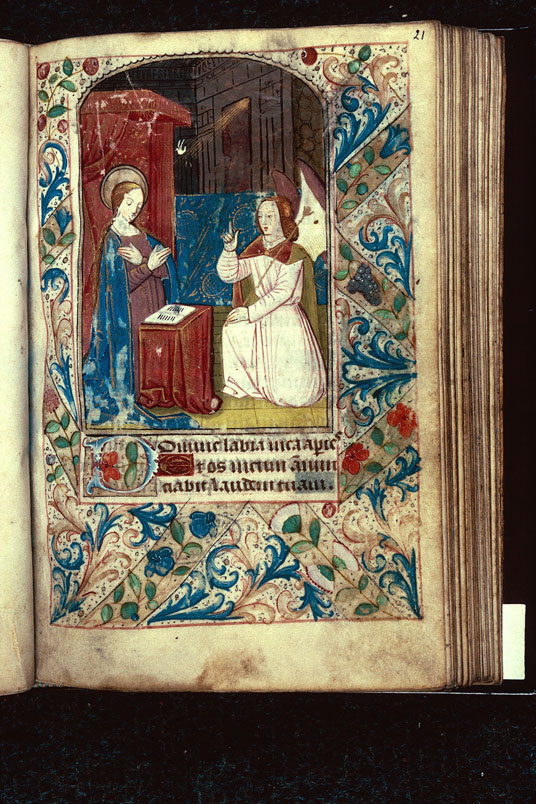 21
Domine labia mea aperies
Et os meum annun
ciabit laudem tuam.